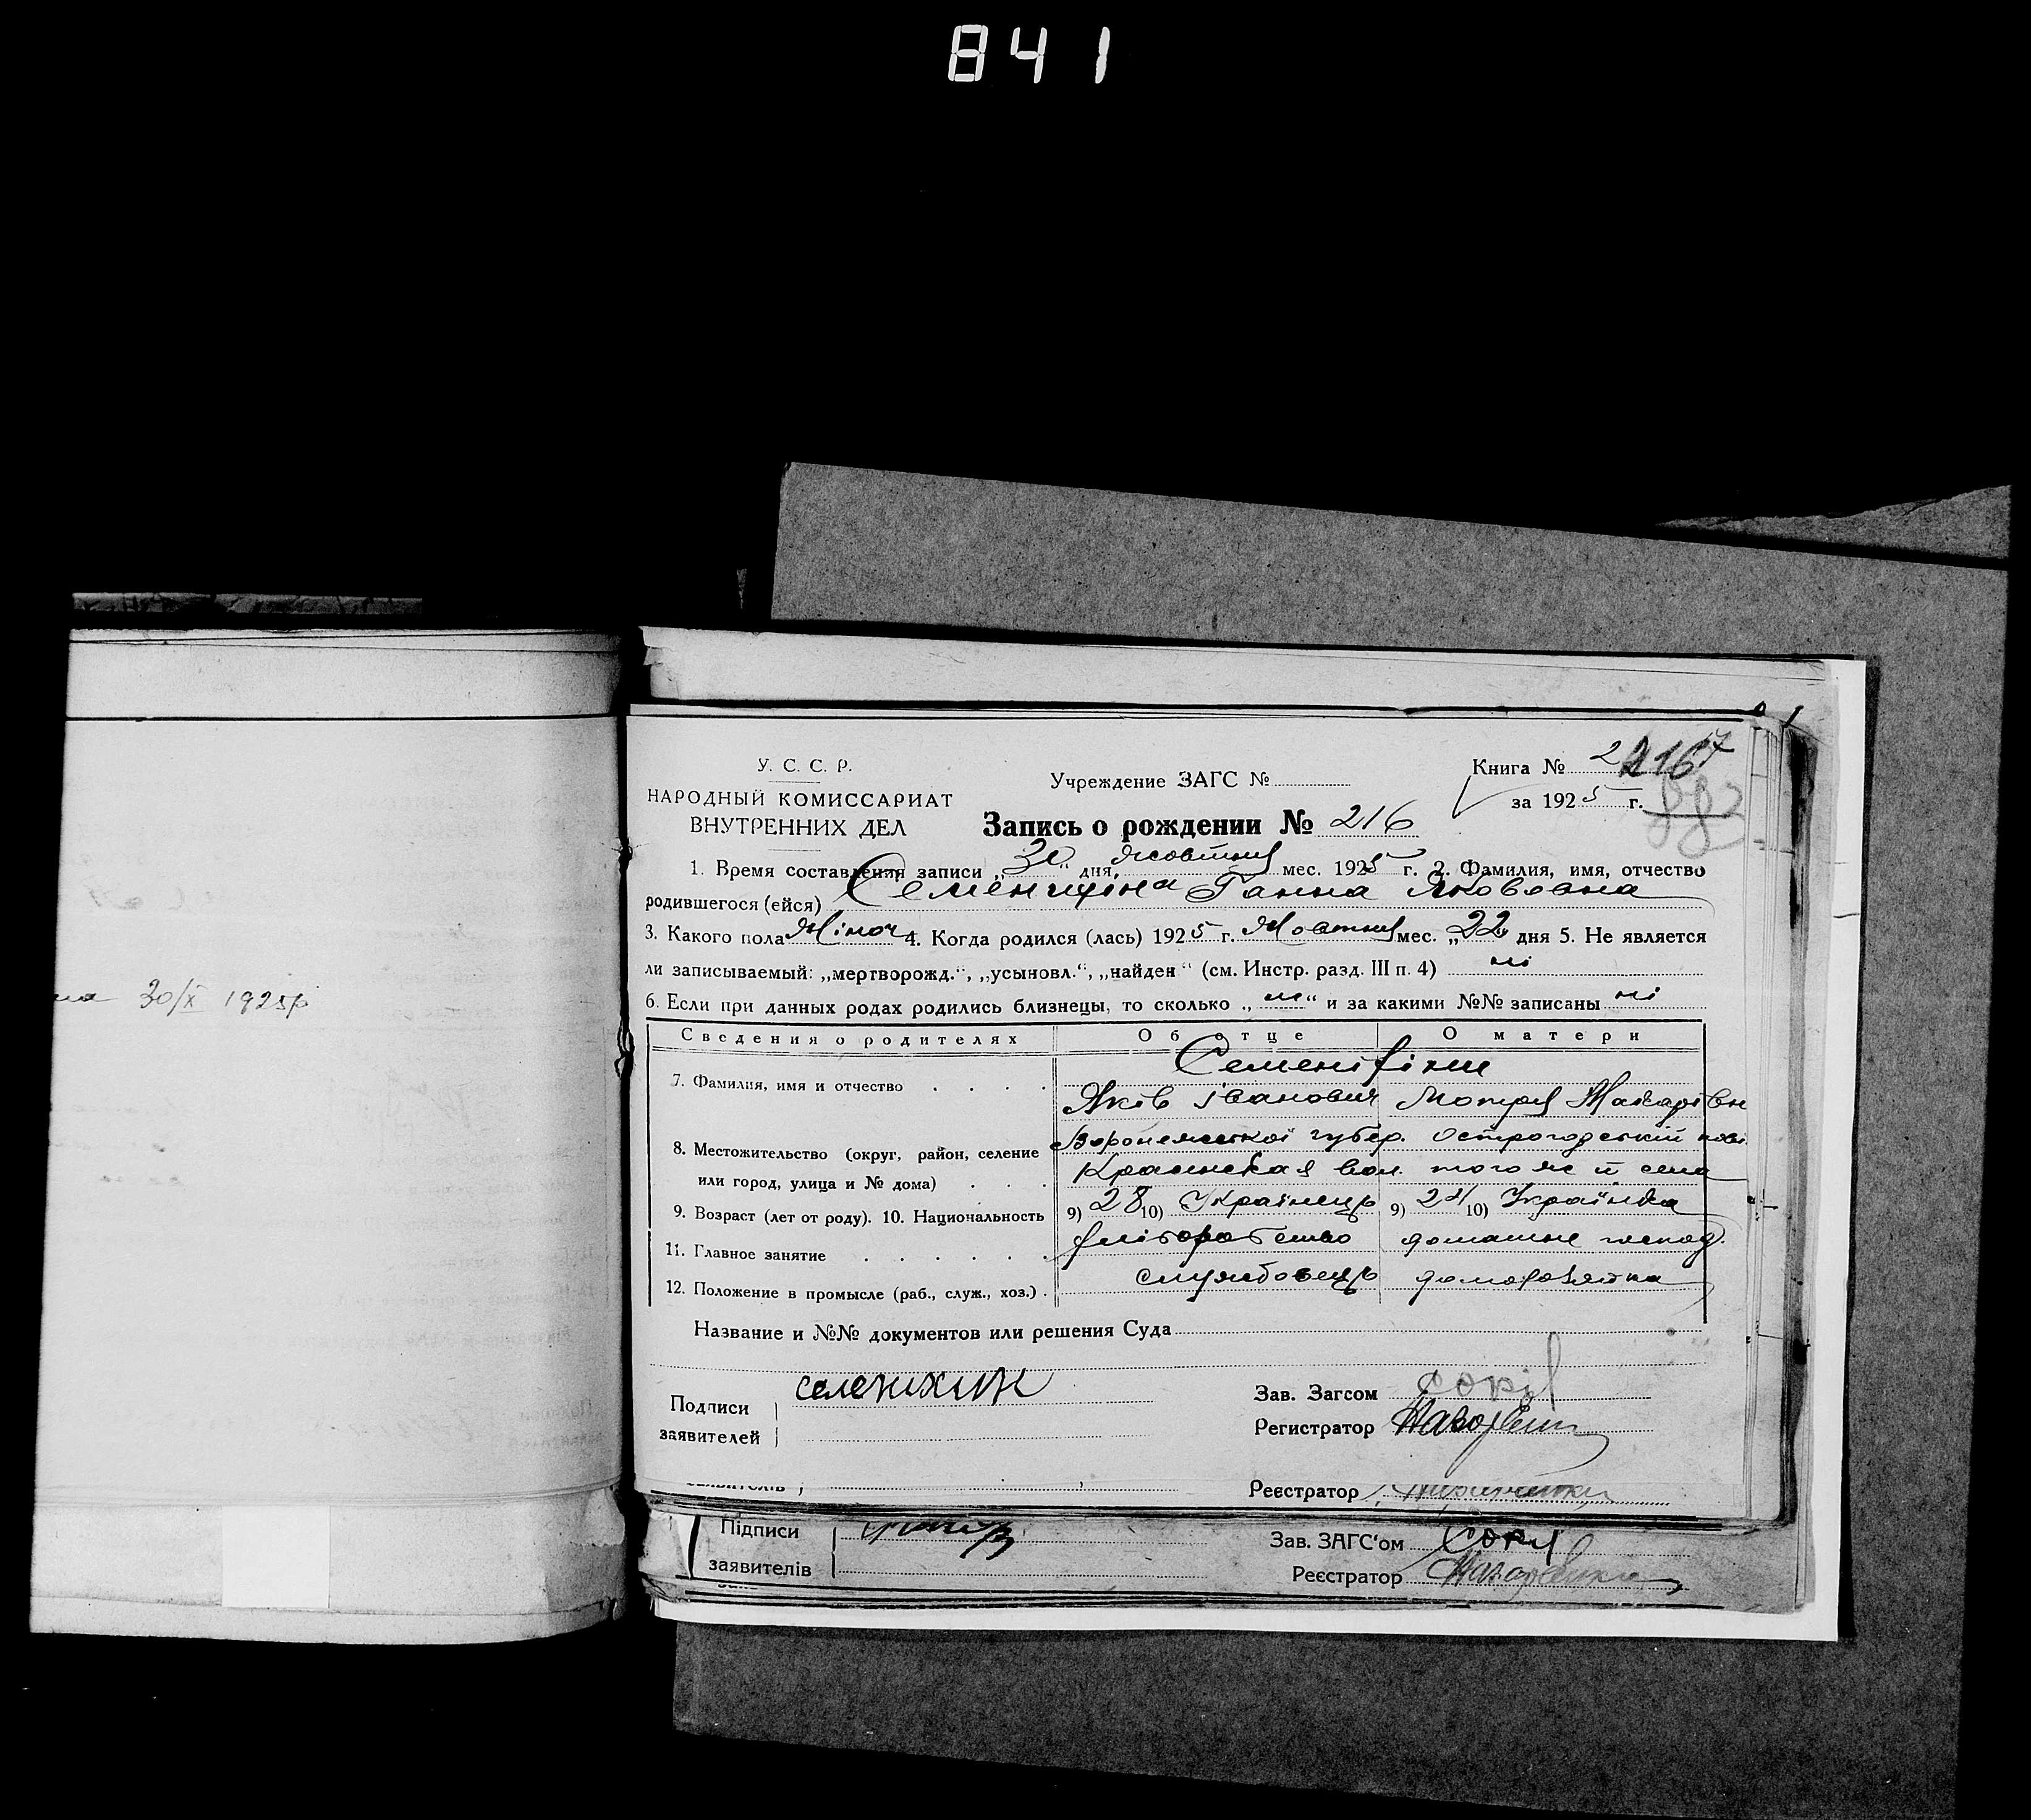 841
У. С. С. Р.
НАРОДНЫЙ КОМИССАРИАТ
ВНУТРЕННИХ ДЕЛ
Учреждение ЗАГС №
Книга № 2
за 1925 г.
Запись о рождении № 216
1. Время составления записи „30“ дня, жовтня мес. 1925 г. 2. Фамилия, имя, отчество
родившегося (ейся) Ганна Якововна
3. Какого пола Жіноч 4. Когда родился (лась) 1925 г. Жовтня мес. „22“ дня 5. Не является
ли записываемый: „мертворожд.“, „усыновл.“, „найден“ (см. Инстр. разд. III п. 4) ні
6. Если при данных родах родились близнецы, то сколько „ні“ и за какими №№ записаны ні
Сведения о родителях Об отце О матери
7. Фамилия, имя и отчество
Яків Іванович Мотря Макарівн
8. Местожительство (округ, район, селение
или город, улица и № дома)
Воронежської губер. Острогодській пові.
вол. того ж й села
9. Возраст (лет от роду). 10. Национальность 9) 28 10) Українець 9) 24 10) Українка
11. Главное занятие домашнє господ.
12. Положение в промысле (раб., служ., хоз.) службовець домохозяйка
Название и №№ документов или решения Суда
Подписи
заявителей
Зав. Загсом Сокіл
Регистратор
Реєстратор
Підписи
заявителів
Зав. ЗАГС'ом
Реєстратор
на 30/X 1925 р